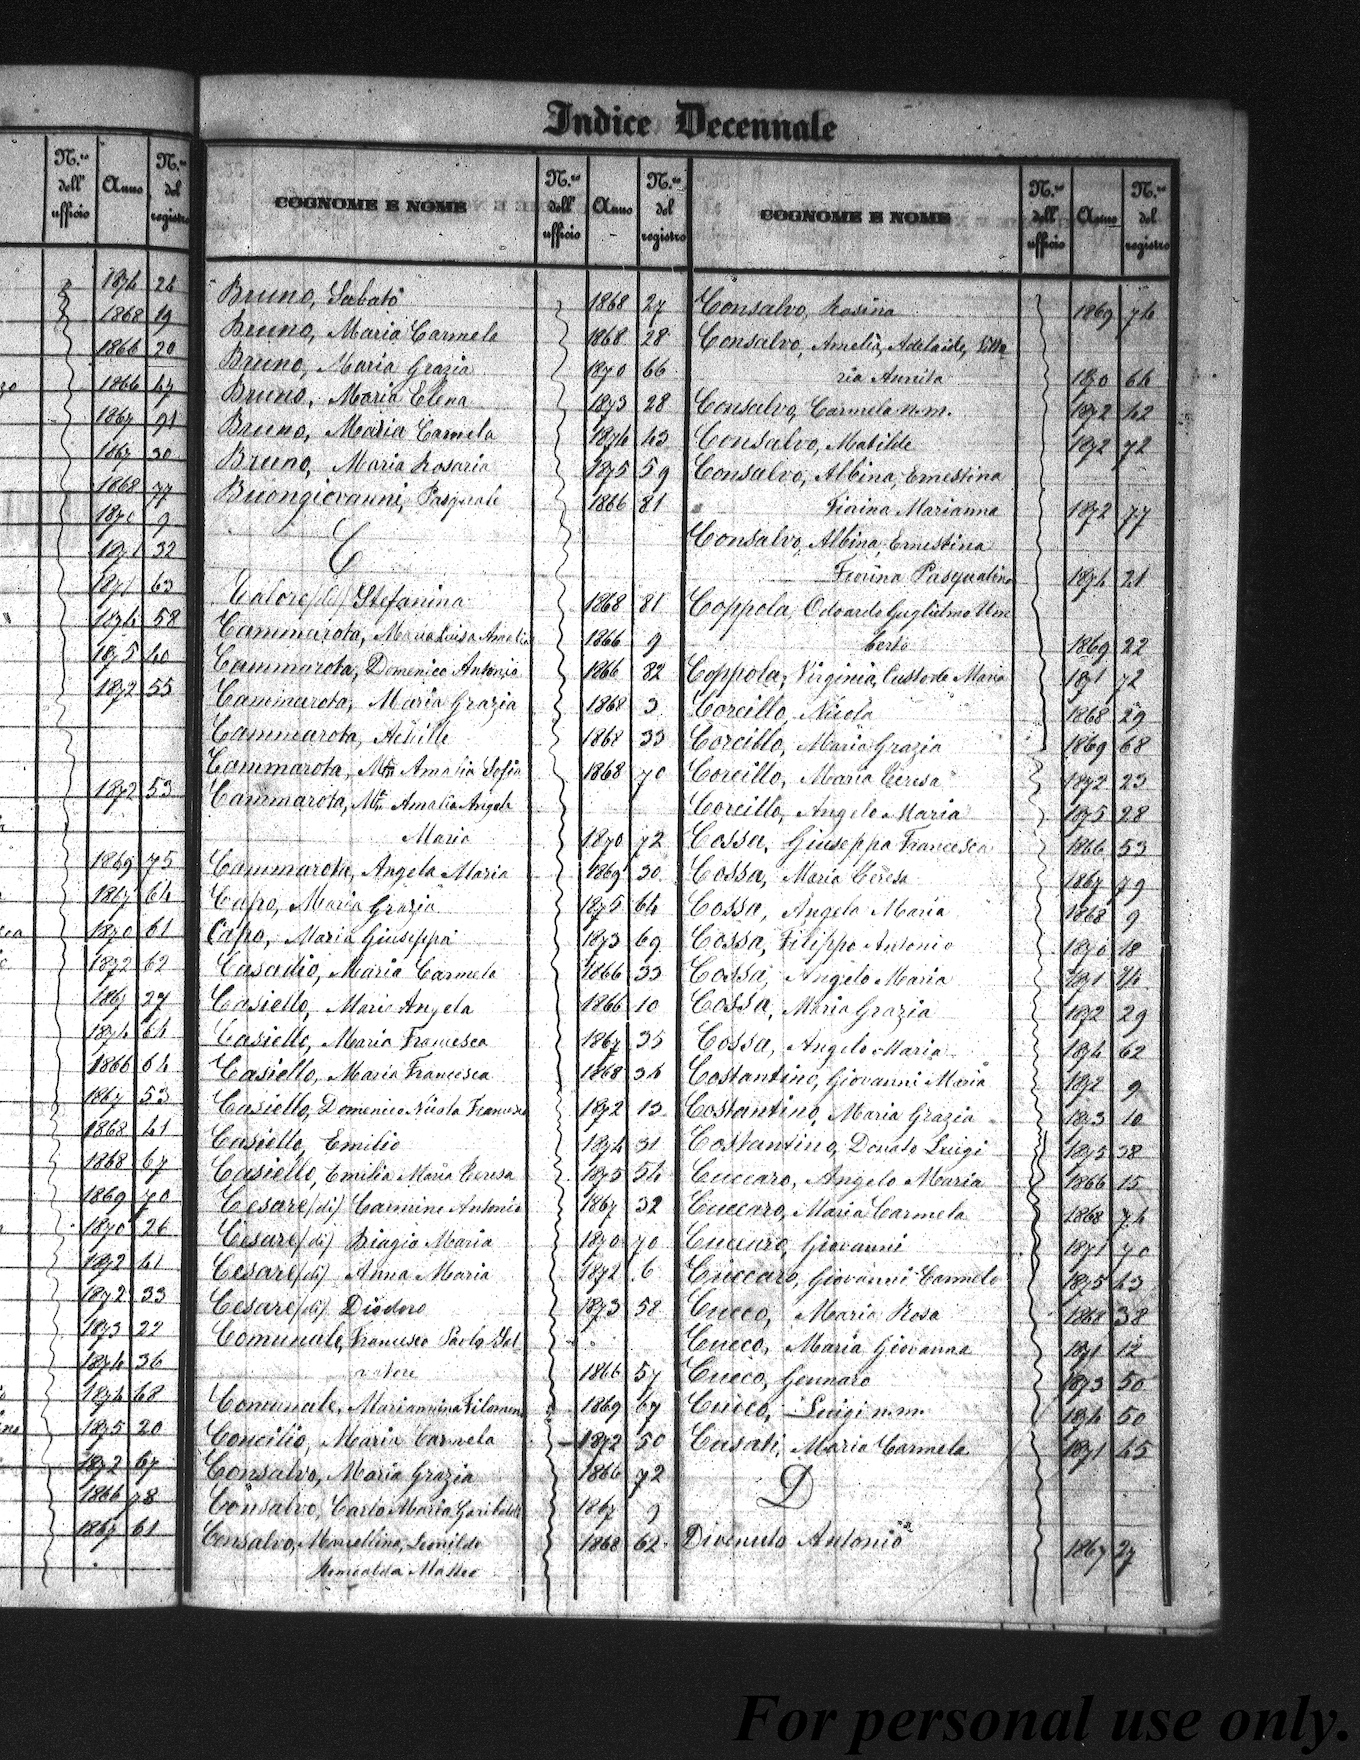 Indice Decennale
N.ro dell' ufficio Anno N.ro del registro
COGNOME E NOME N.ro dell' ufficio Anno N.ro del registro
COGNOME E NOME N.ro dell' ufficio Anno N.ro del registro
1874 24
1868 19
1866 20
1866 47
1867 91
1867 30
1868 77
1870 9
1871 32
1871 63
1874 58
1875 40
1872 55
1872 53
1869 75
1867 64
1870 61
1872 62
1867 27
1874 64
1866 64
1867 53
1868 41
1868 67
1869 70
1870 26
1872 41
1872 33
1873 22
1874 36
1874 68
1875 20
1872 67
1866 78
1867 61
Bruno, Sabato 1868 27
Bruno, Maria Carmela 1868 28
Bruno, Maria Grazia 1870 66
Bruno, Maria Elena 1873 28
Bruno, Maria Carmela 1874 43
Bruno, Maria Rosaria 1875 59
Buongiovanni, Pasquale 1866 81
C
Calore (di) Stefanina 1868 81
Cammarota, Maria Luisa Amalia 1866 9
Cammarota, Domenico Antonio 1866 82
Cammarota, Maria Grazia 1868 3
Cammarota, Achille 1868 33
Cammarota, Ma Amalia Sofia 1868 70
Cammarota, Ma Amalia Angela
Maria 1870 72
Cammarota, Angela Maria 1869 30
Capo, Maria Grazia 1875 64
Capo, Maria Giuseppa 1873 69
Casadio, Maria Carmela 1866 33
Casiello, Maria Angela 1866 10
Casiello, Maria Francesca 1867 35
Casiello, Maria Francesca 1868 34
Casiello, Domenico Nicola Francesco 1872 13
Casiello, Emilio 1874 31
Casiello, Emilia Maria Teresa 1875 54
Cesare (di) Carmine Antonio 1867 32
Cesare (di) Biagio Maria 1870 70
Cesare (di) Anna Maria 1872 6
Cesare (di) Diodoro 1873 58
Comunale, Francesco Paolo Sal
vatore 1866 57
Comunale, Mariannina Filomena 1869 67
Concilio, Maria Carmela 1872 50
Consalvo, Maria Grazia 1866 72
Consalvo, Carlo Maria Garibaldi 1867 9
Consalvo, Marcellina, Leonilde 1868 62
Matteo
Consalvo, Rosina 1869 74
Consalvo, Amelia, Adelaide, Vitto
ria Annita 1870 64
Consalvo, Carmela n.m. 1872 42
Consalvo, Matilde 1872 72
Consalvo, Albina, Ernestina
Fiorina Marianna 1872 77
Consalvo, Albina, Ernestina
Fiorina Pasqualina 1874 21
Coppola, Odoardo Guglielmo Um
berto 1869 22
Coppola, Virginia, Custode Maria 1871 72
Corcillo, Nicola 1868 29
Corcillo, Maria Grazia 1869 68
Corcillo, Maria Teresa 1872 23
Corcillo, Angelo Maria 1875 28
Cossa, Giuseppa Francesca 1866 53
Cossa, Maria Teresa 1867 79
Cossa, Angela Maria 1868 9
Cossa, Filippo Antonio 1870 18
Cossa, Angelo Maria 1871 74
Cossa, Maria Grazia 1872 29
Cossa, Angelo Maria 1874 62
Costantino, Giovanni Maria 1872 9
Costantino, Maria Grazia 1873 10
Costantino, Donato Luigi 1875 38
Cuccaro, Angelo Maria 1866 15
Cuccaro, Maria Carmela 1868 74
Cuccaro, Giovanni 1871 70
Cuccaro, Giovanni Carmelo 1875 43
Cucco, Maria Rosa 1868 38
Cucco, Maria Giovanna 1871 12
Cucco, Gennaro 1873 50
Cucco, Luigi n.m. 1874 50
Cusati, Maria Carmela 1871 45
D
Divenuto Antonio 1867 27
For personal use only.